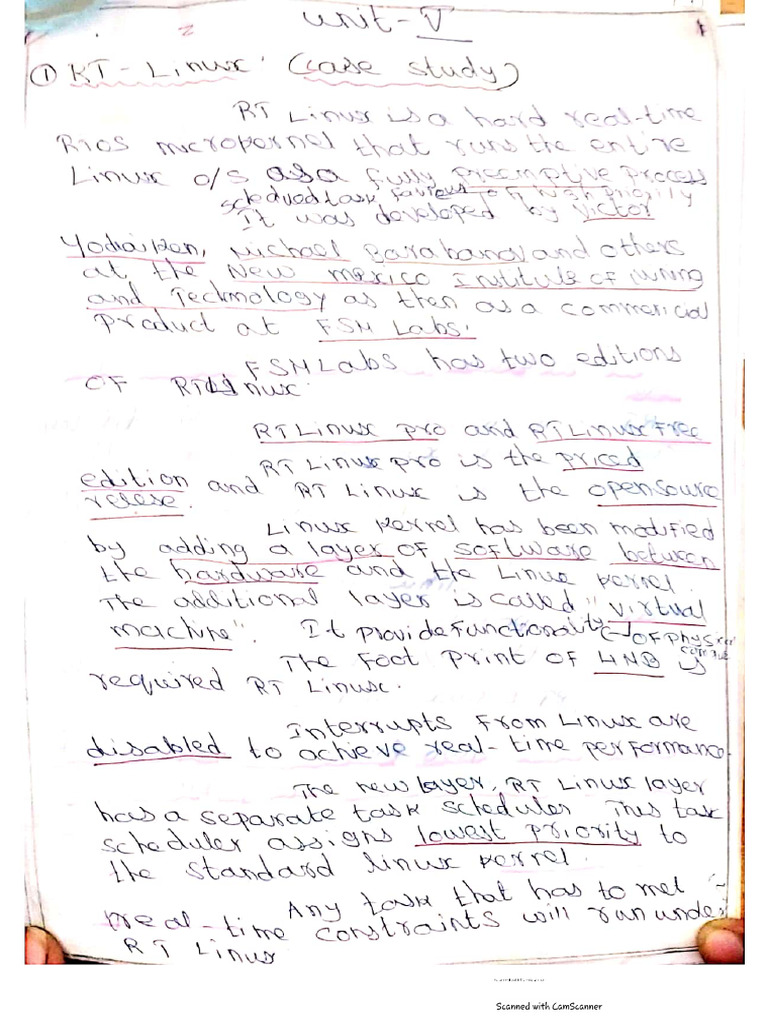 unit-V
① RT-Linux: (case study)
RT Linux is a hard real-time
RTOS micropernel that runs the entire
Linux o/s as a fully preemptive process
scheduod task of high priority
It was developed by victor
Yodaiken, Michael Barabanov and others
at the New mexico Institute of mining
and Technology as then as a commercial
product at FSM Labs.
FSMLabs has two editions
OF RTLinux.
RTLinux pro and RTLinux Free
edition
RT Linux pro is the priced
and RT Linux is the opensource
relese.
Linux kernel has been modified
by adding a layer of software between
the hardware and the Linux kernel.
The additional layer is called "virtual
machine". It provide functionality of physical
The Foot Print of 4MB is
required RT Linux.
Interrupts From Linux are
disabled to achieve real-time performance.
The new layer, RT Linux layer
has a separate task scheduler. This task
scheduler assigns lowest priority to
the standard linux kernel.
Any task that has to met
real-time constraints will run under
RT Linux
Scanned with CamScanner